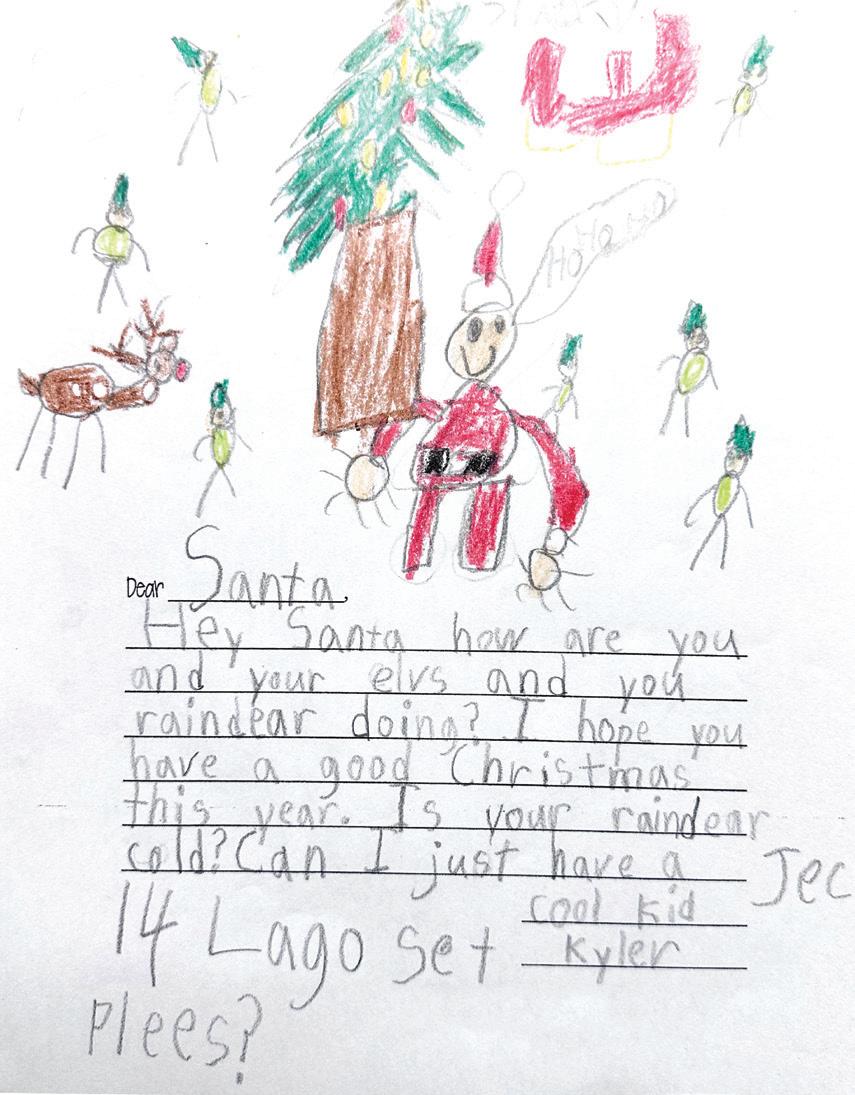 Ho Ho Ho
Dear Santa,
Hey Santa how are you
and your elvs and you
raindear doing? I hope you
have a good Christmas
this year. Is your raindear
cold? Can I just have a Jec
14 Lago set
Plees?
cool kid
Kyler